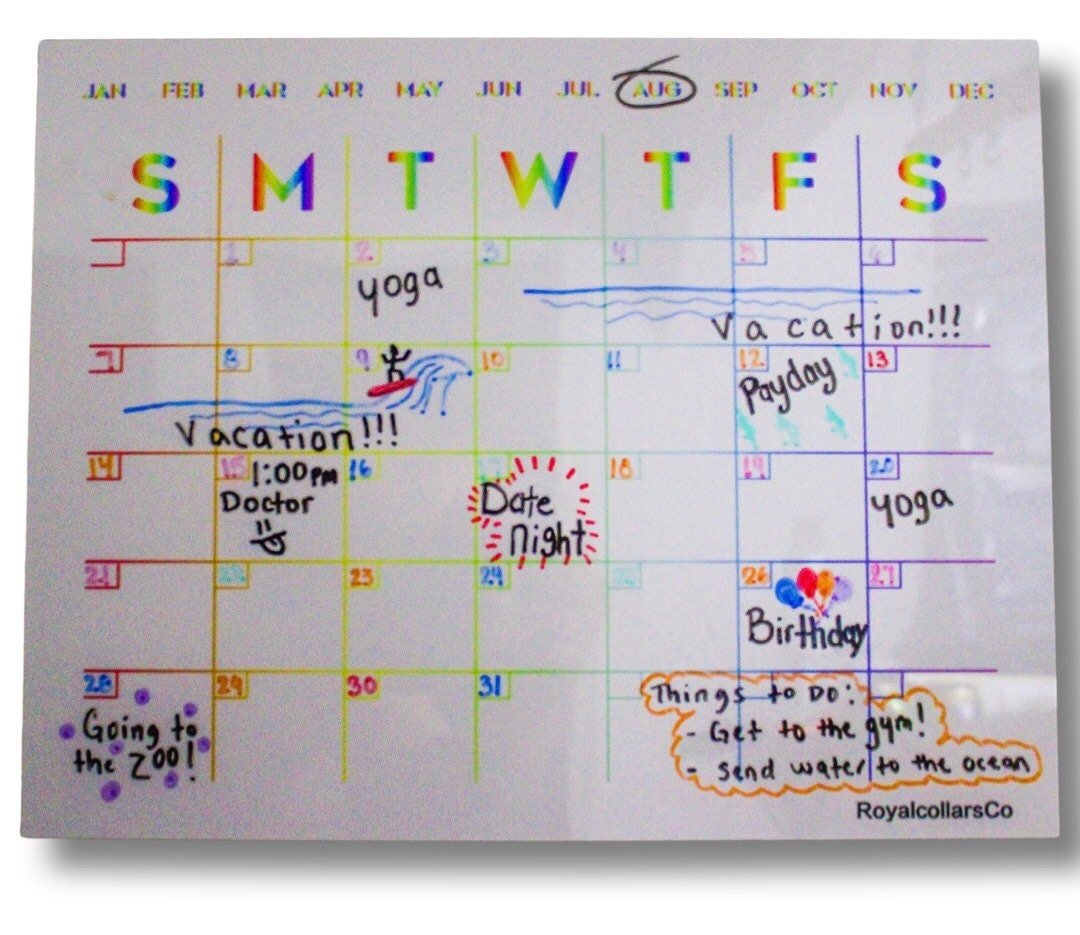 JAN FEB MAR APR MAY JUN JUL AUG SEP OCT NOV DEC
S M T W T F S
1 2 3 4 5 6
yoga
Vacation!!!
7 8 9 10 11 12 13
Payday
Vacation!!!
14 15 1:00PM 16 17 18 19 20
Doctor
Date
night
yoga
21 22 23 24 25 26 27
Birthday
28 29 30 31
Going to
the zoo!
Things to DO:
- Get to the gym!
- Send water to the ocean
RoyalcollarsCo